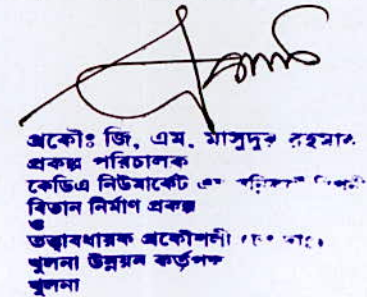 প্রকৌঃ জি, এম, মাসুদুর রহমান
প্রকল্প পরিচালক
কেডিএ নিউমার্কেট
বিতান নির্মাণ প্রকল্প
ও
তত্ত্বাবধায়ক প্রকৌশলী
খুলনা উন্নয়ন কর্তৃপক্ষ
খুলনা